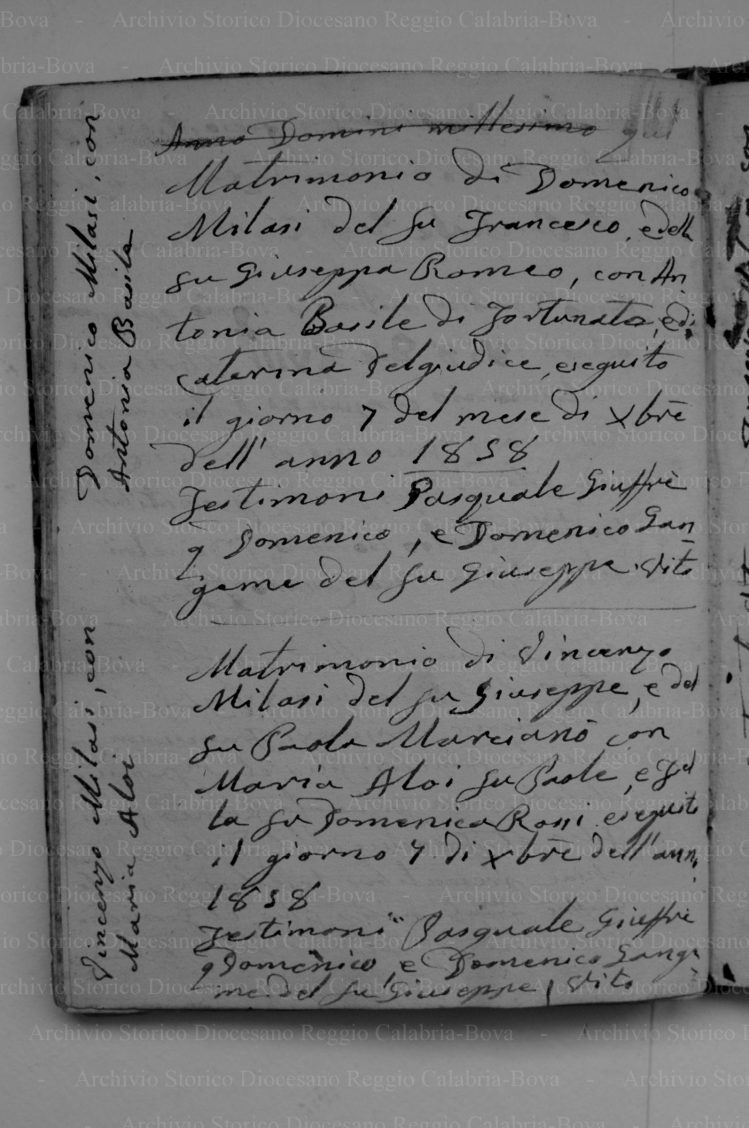 Domenico Milasi, con
Antonia Basile
Anno Domini millesimo
Matrimonio di Domenico
Milasi del fu Francesco, e della
fu Giuseppa Romeo, con An
tonia Basile di Fortunato, e di
Caterina Delgiudice, eseguito
il giorno 7 del mese di Xbre
dell'anno 1858
Testimoni Pasquale Giuffrè
q Domenico, e Domenico Gan
geme del fu Giuseppe. Vito
Vincenzo Milasi, con
Maria Aloi
Matrimonio di Vincenzo
Milasi del fu Giuseppe, e del
fu Paola Marcianò con
Maria Aloi fu Paolo, e del
la fu Domenica Rossi eseguito
il giorno 7 di Xbre dell'ann.
1858
Testimoni Pasquale Giuffrè
q Domenico e Domenico Gange
me del fu Giuseppe / Vito
Archivio Storico Diocesano Reggio Calabria-Bova